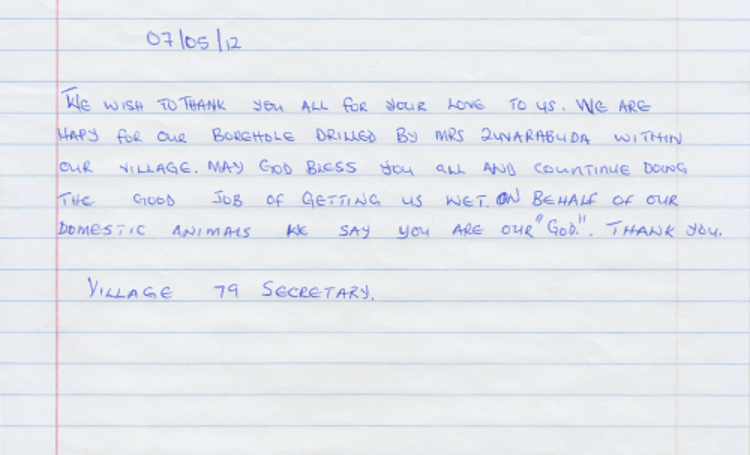 07/05/12
WE WISH TO THANK YOU ALL FOR YOUR LOVE TO US. WE ARE
HAPY FOR OUR BOREHOLE DRILLED BY MRS ZUVARABUDA WITHIN
OUR VILLAGE. MAY GOD BLESS YOU ALL AND COUNTINUE DOING
THE GOOD JOB OF GETTING US WET. ON BEHALF OF OUR
DOMESTIC ANIMALS WE SAY YOU ARE OUR "GOD.". THANK YOU.
VILLAGE 79 SECRETARY.